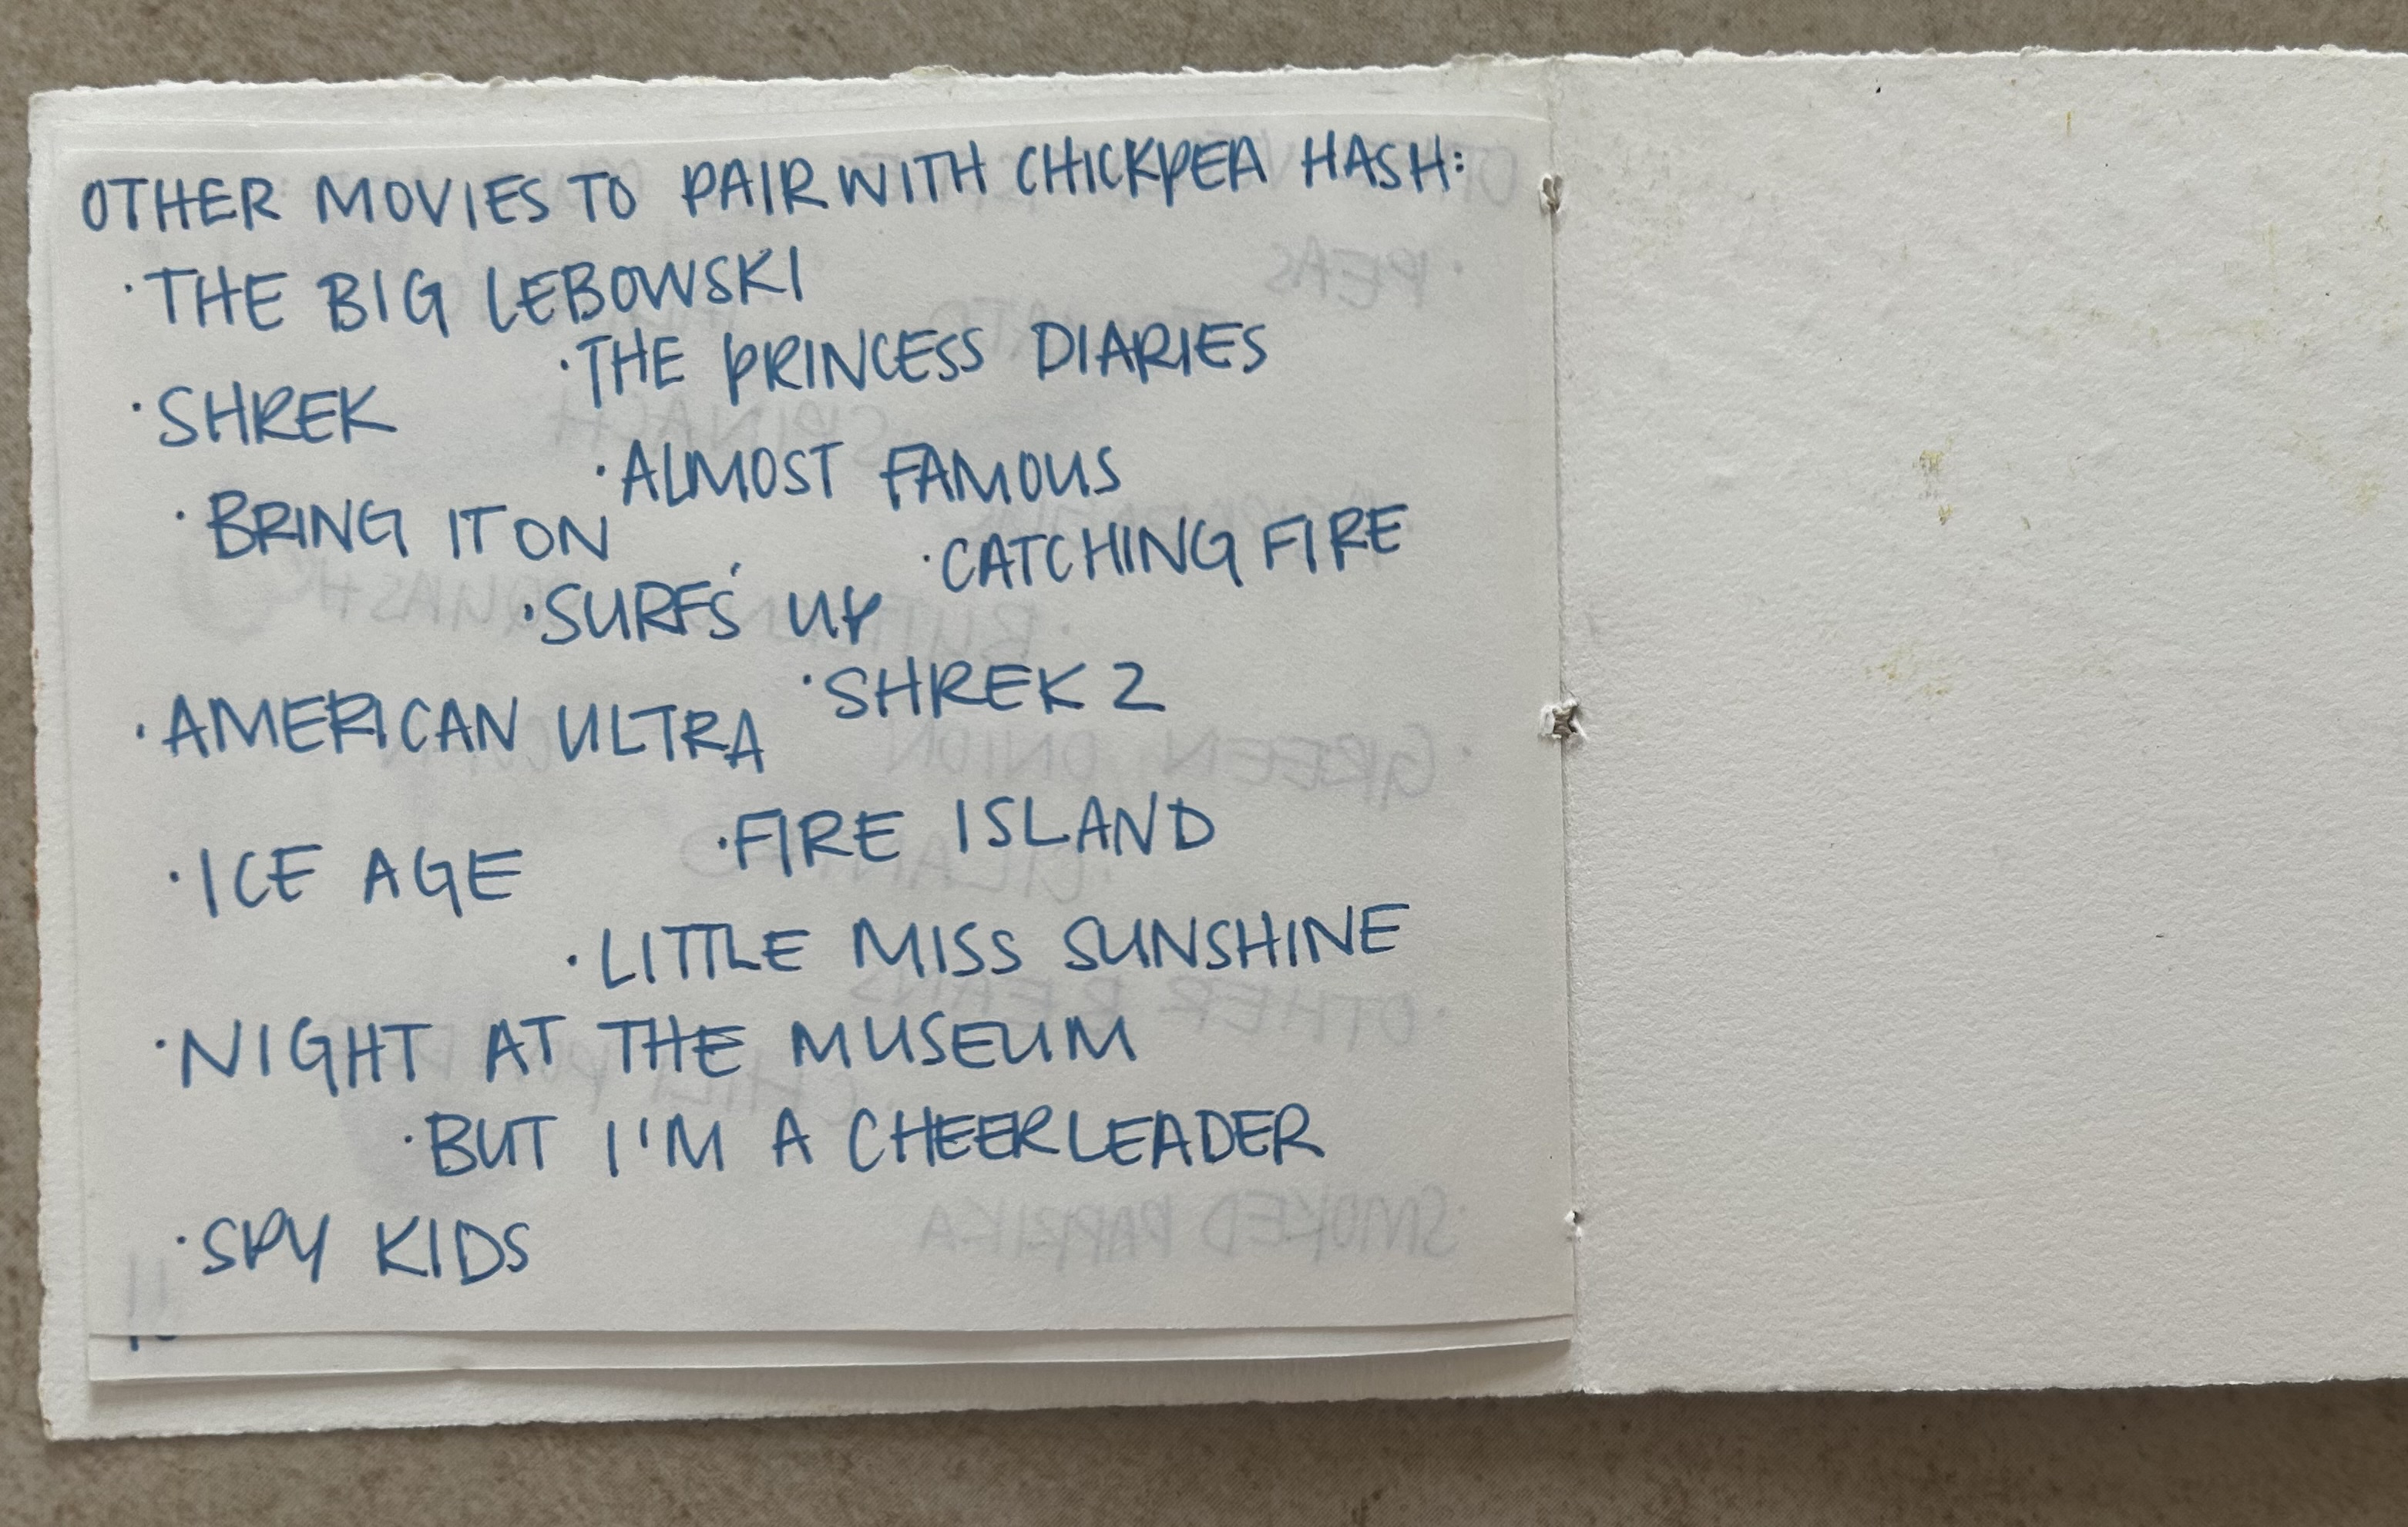 OTHER MOVIES TO PAIR WITH CHICKPEA HASH:
· THE BIG LEBOWSKI
· THE PRINCESS DIARIES
· SHREK
· ALMOST FAMOUS
· BRING IT ON
· CATCHING FIRE
· SURF'S UP
· SHREK 2
· AMERICAN ULTRA
· FIRE ISLAND
· ICE AGE
· LITTLE MISS SUNSHINE
· NIGHT AT THE MUSEUM
· BUT I'M A CHEERLEADER
· SPY KIDS
· PEAS
SPINACH
· GREEN ONION
· OTHER BEANS
· SMOKED PAPRIKA